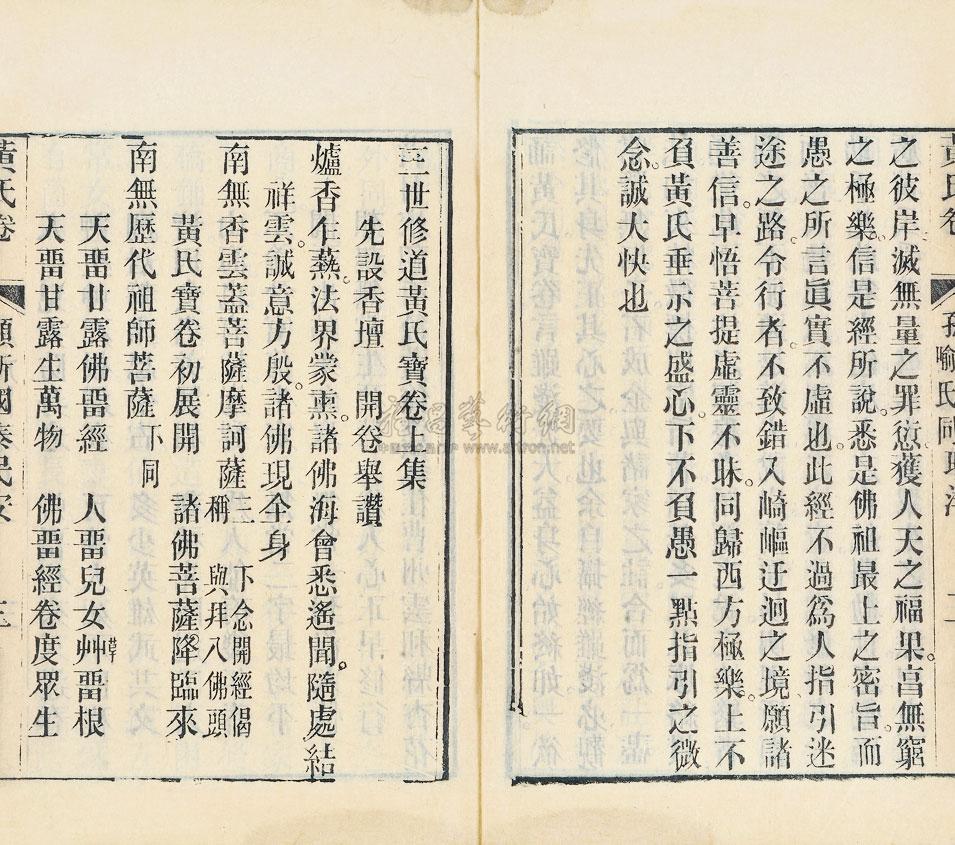 之彼岸滅無量之罪愆獲人天之福果亯無窮
之極樂。信是經所說。悉是佛祖最上之密旨。而
愚之所言眞實。不虛也。此經不過爲人指引迷
途之路。令行者。不致錯入崎嶇迂迴之境。願諸
善信。早悟菩提。虛靈不昧。同歸西方極樂。上不
負黃氏垂示之盛心。下不負愚一點指引之微
念。誠大快也。
三世修道黃氏寶卷上集
先設香壇　開卷舉讚
爐香乍爇。法界蒙熏。諸佛海會悉遙聞。隨處結
祥雲。誠意方殷。諸佛現全身
南無香雲蓋菩薩摩訶薩 三稱 下念開經偈 與拜八佛頭
黃氏寶卷初展開　諸佛菩薩降臨來
南無歷代祖師菩薩 下同
天畱甘露佛畱經　人畱兒女艸畱根
天畱甘露生萬物　佛畱經卷度眾生
黃氏卷